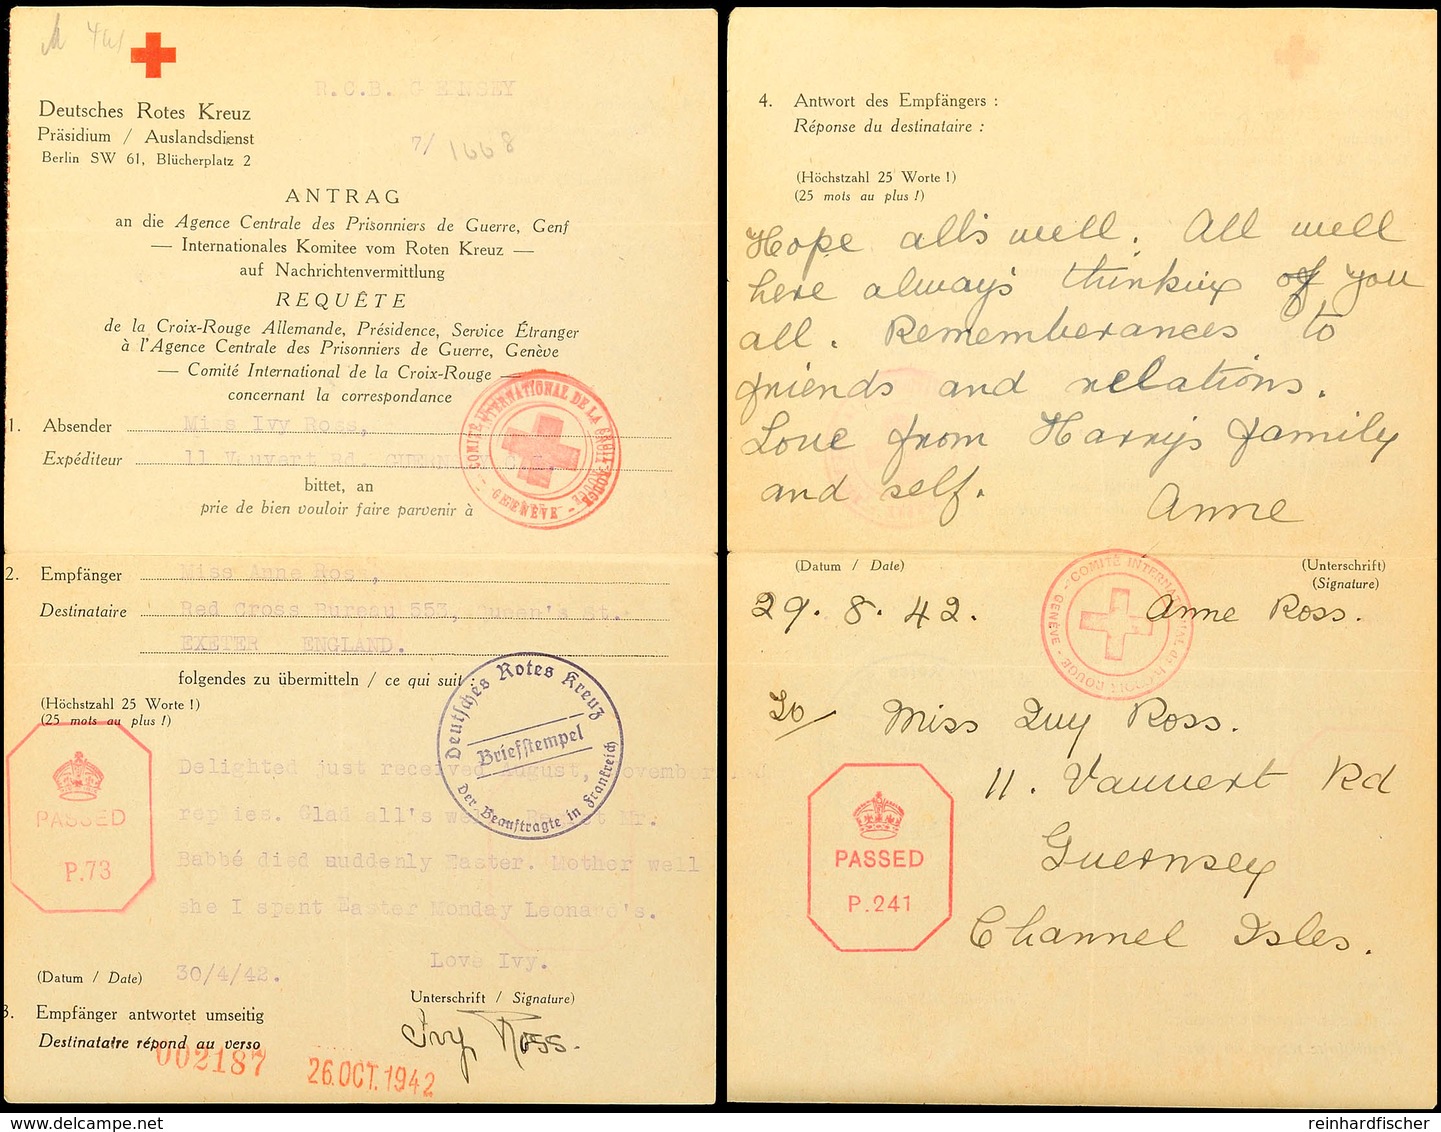 R.C.B. G ERNSEY
Deutsches Rotes Kreuz
Präsidium / Auslandsdienst
Berlin SW 61, Blücherplatz 2
7/ 1668
ANTRAG
an die Agence Centrale des Prisonniers de Guerre, Genf
— Internationales Komitee vom Roten Kreuz —
auf Nachrichtenvermittlung
REQUÊTE
de la Croix-Rouge Allemande, Présidence, Service Étranger
à l'Agence Centrale des Prisonniers de Guerre, Genève
— Comité International de la Croix-Rouge —
concernant la correspondance
1. Absender Miss Ivy Ross,
Expéditeur 11 Vauvert Rd. GUERNSEY C.I.
COMITÉ INTERNATIONAL DE LA CROIX-ROUGE - GENÈVE -
bittet, an
prie de bien vouloir faire parvenir à
2. Empfänger Miss Anne Ross,
Destinataire Red Cross Bureau 553, Queen's St.
EXETER ENGLAND.
folgendes zu übermitteln / ce qui suit :
(Höchstzahl 25 Worte !)
(25 mots au plus !)
Deutsches Rotes Kreuz
Briefstempel
Der Beauftragte in Frankreich
PASSED
P.73
Delighted just received August, November
replies. Glad all's well. Mr.
Babbé died suddenly Easter. Mother well
she I spent Easter Monday Leonard's.
Love Ivy.
(Datum / Date) 30/4/42.
Unterschrift / Signature)
3. Empfänger antwortet umseitig
Destinataire répond au verso
Ivy Ross.
002187
26.OCT.1942
4. Antwort des Empfängers :
Réponse du destinataire :
(Höchstzahl 25 Worte !)
(25 mots au plus !)
Hope all's well. All well
here always thinking of you
all. Rememberances to
friends and relations.
Love from Harrys family
and self.
Anne
(Datum / Date)
(Unterschrift)
(Signature)
29. 8. 42. Anne Ross.
COMITÉ INTERNATIONAL DE LA CROIX ROUGE - GENÈVE -
To/ Miss Ivy Ross.
11. Vauvert Rd
Guernsey
Channel Isles.
PASSED
P.241
reinhardfischer